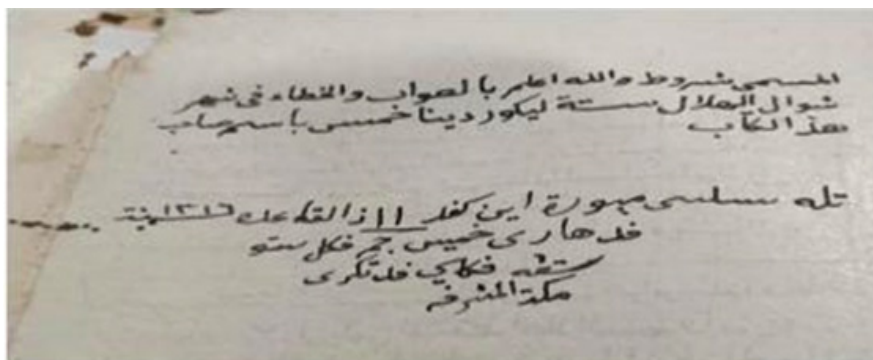 المسمى شروط والله اعلم بالصواب والخطاء فى شهر
شوال الهلال ستة ليكور دينا خمس باسم صاحب
هذ الكتاب
تله سلسى مپورة اين كفد ١١ ذالقاعدة ١٣١٦
فد هارى خميس جم فكل ستو
ستڠه فكاي فد نكرى
مكة المشرفه